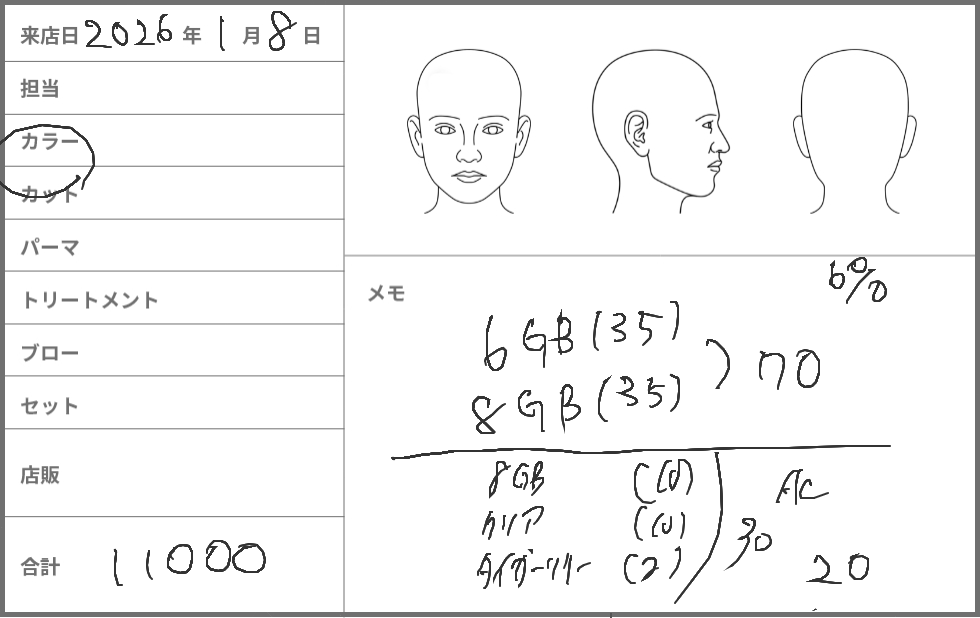 来店日 2026 年 1 月 8 日
担当
カラー
カット
パーマ
トリートメント
ブロー
セット
店販
合計 11000
メモ
6%
6GB (35)
8GB (35)
) 70
8GB (10)
クリア (10)
(2)
AC
30
20